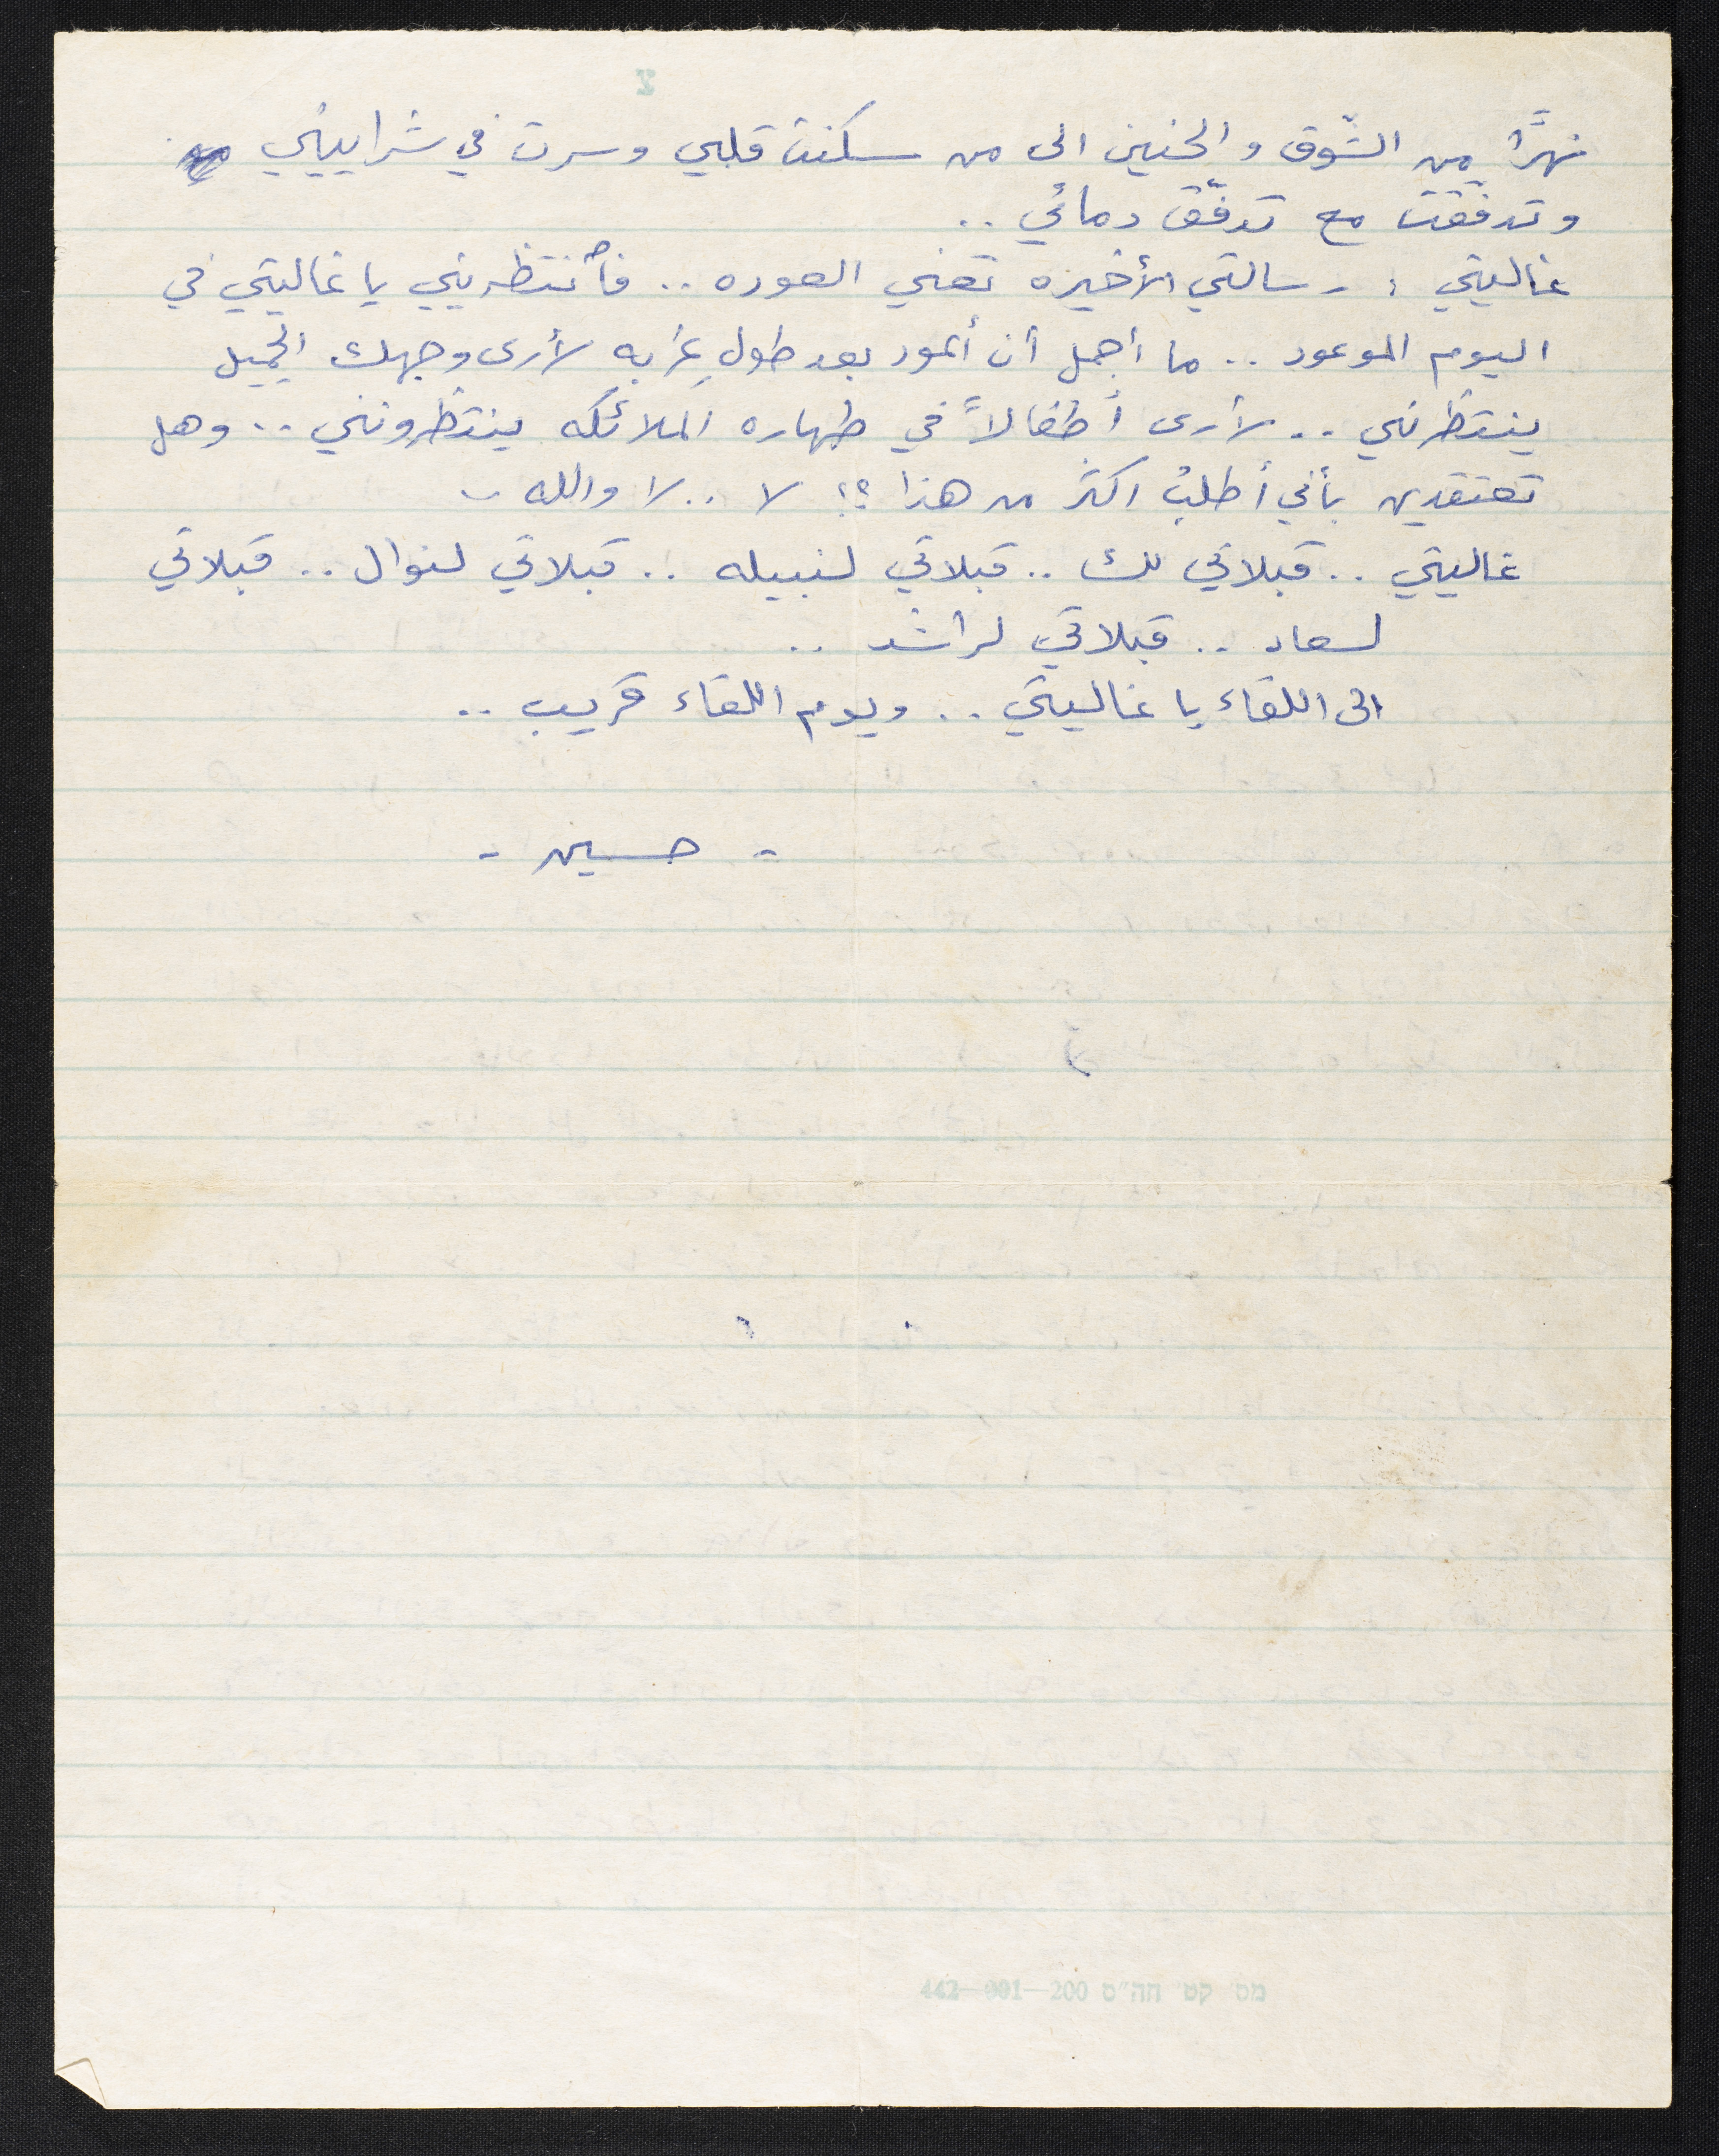 نهرًا من الشّوق والحنين الى من سكنت قلبي وسرت في شراييني
وتدفّقت مع تدفّق دمائي ..
غاليتي : رسالتي الأخيره تعني العوده .. فأنتظريني يا غاليتي في
اليوم الموعود .. ما أجمل أن أعود بعد طول غربه لأرى وجهك الجميل
ينتظرني .. لأرى أطفالاً في طهاره الملائكه ينتظرونني .. وهل
تعتقدين بأني أطلبُ اكثر من هذا ؟! لا .. لا والله ..
غاليتي .. قبلاتي لك .. قبلاتي لنبيله .. قبلاتي لنوال .. قبلاتي
لسعاد .. قبلاتي لراشد ..
الى اللقاء يا غاليتي .. ويوم اللقاء قريب ..
- حسين -
מס קט חה"ס 200-001-442